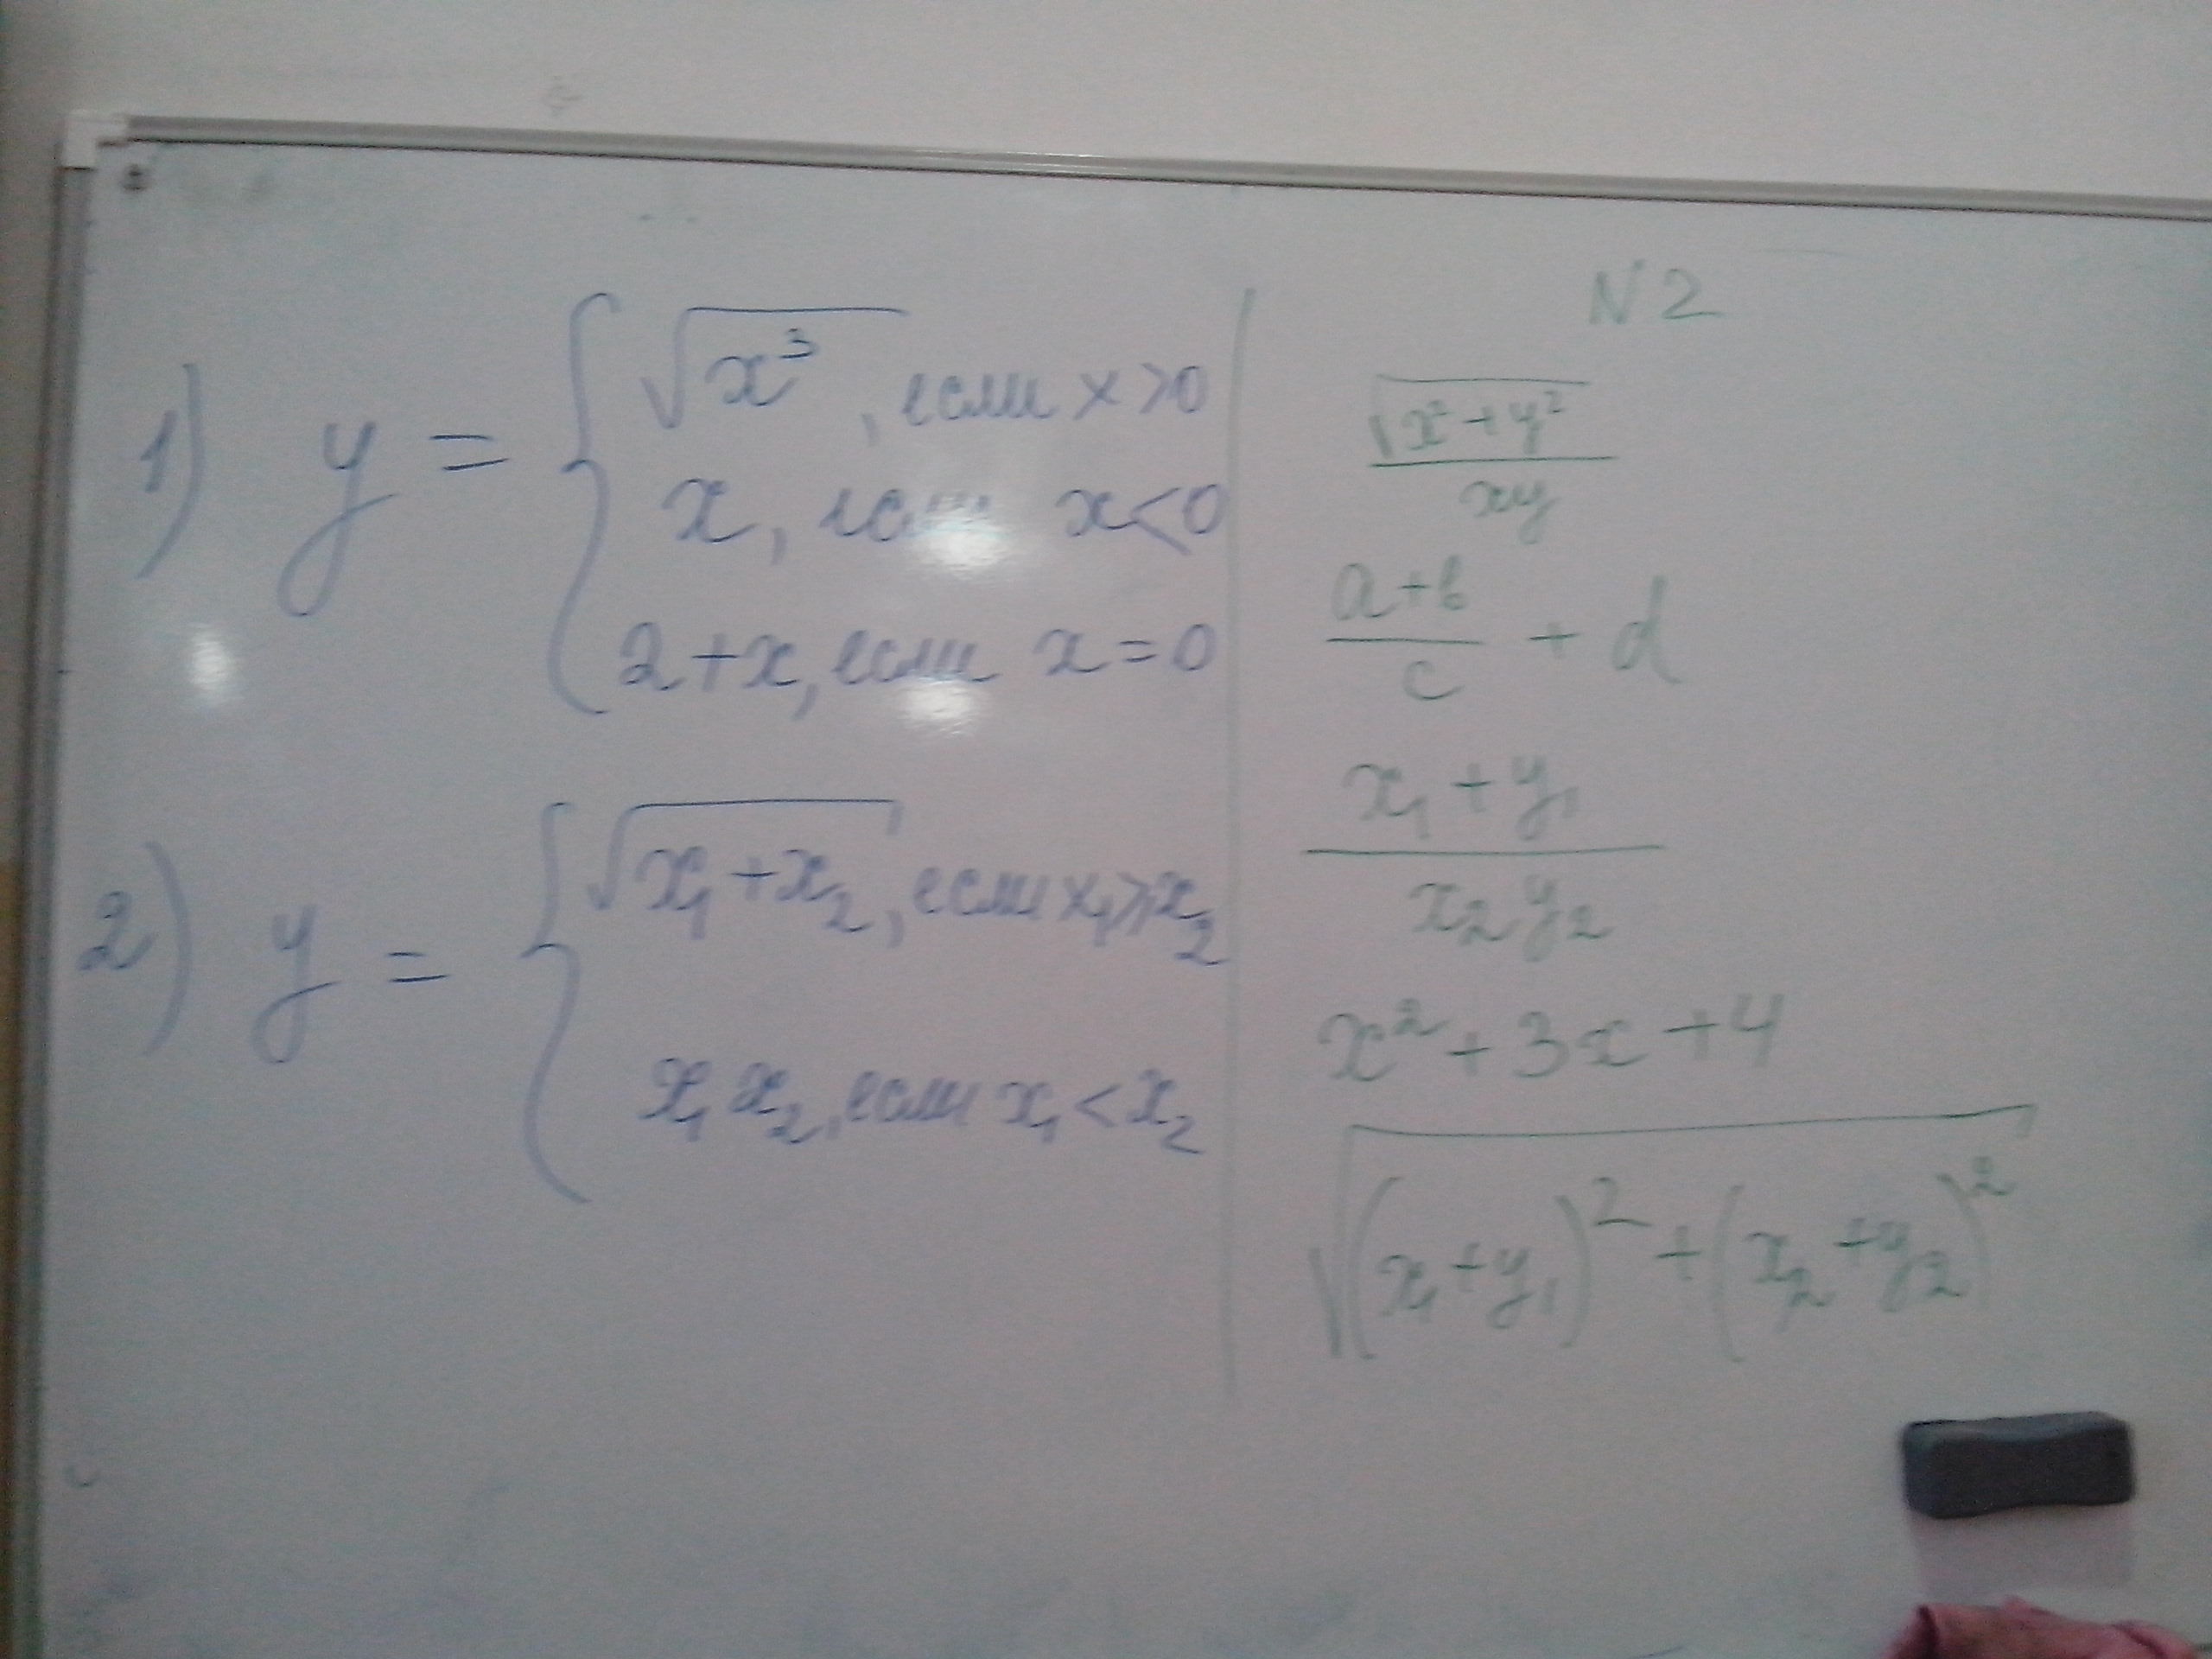 1) y = { √x³, если x>0
x, если x<0
2+x, если x=0
2) y = { √x₁+x₂, если x₁⩾x₂
x₁x₂, если x₁<x₂
N2
√x²+y²
xy
a+b
c
+ d
x₁+y₁
x₂y₂
x²+3x+4
√(x₁+y₁)²+(x₂+y₂)²